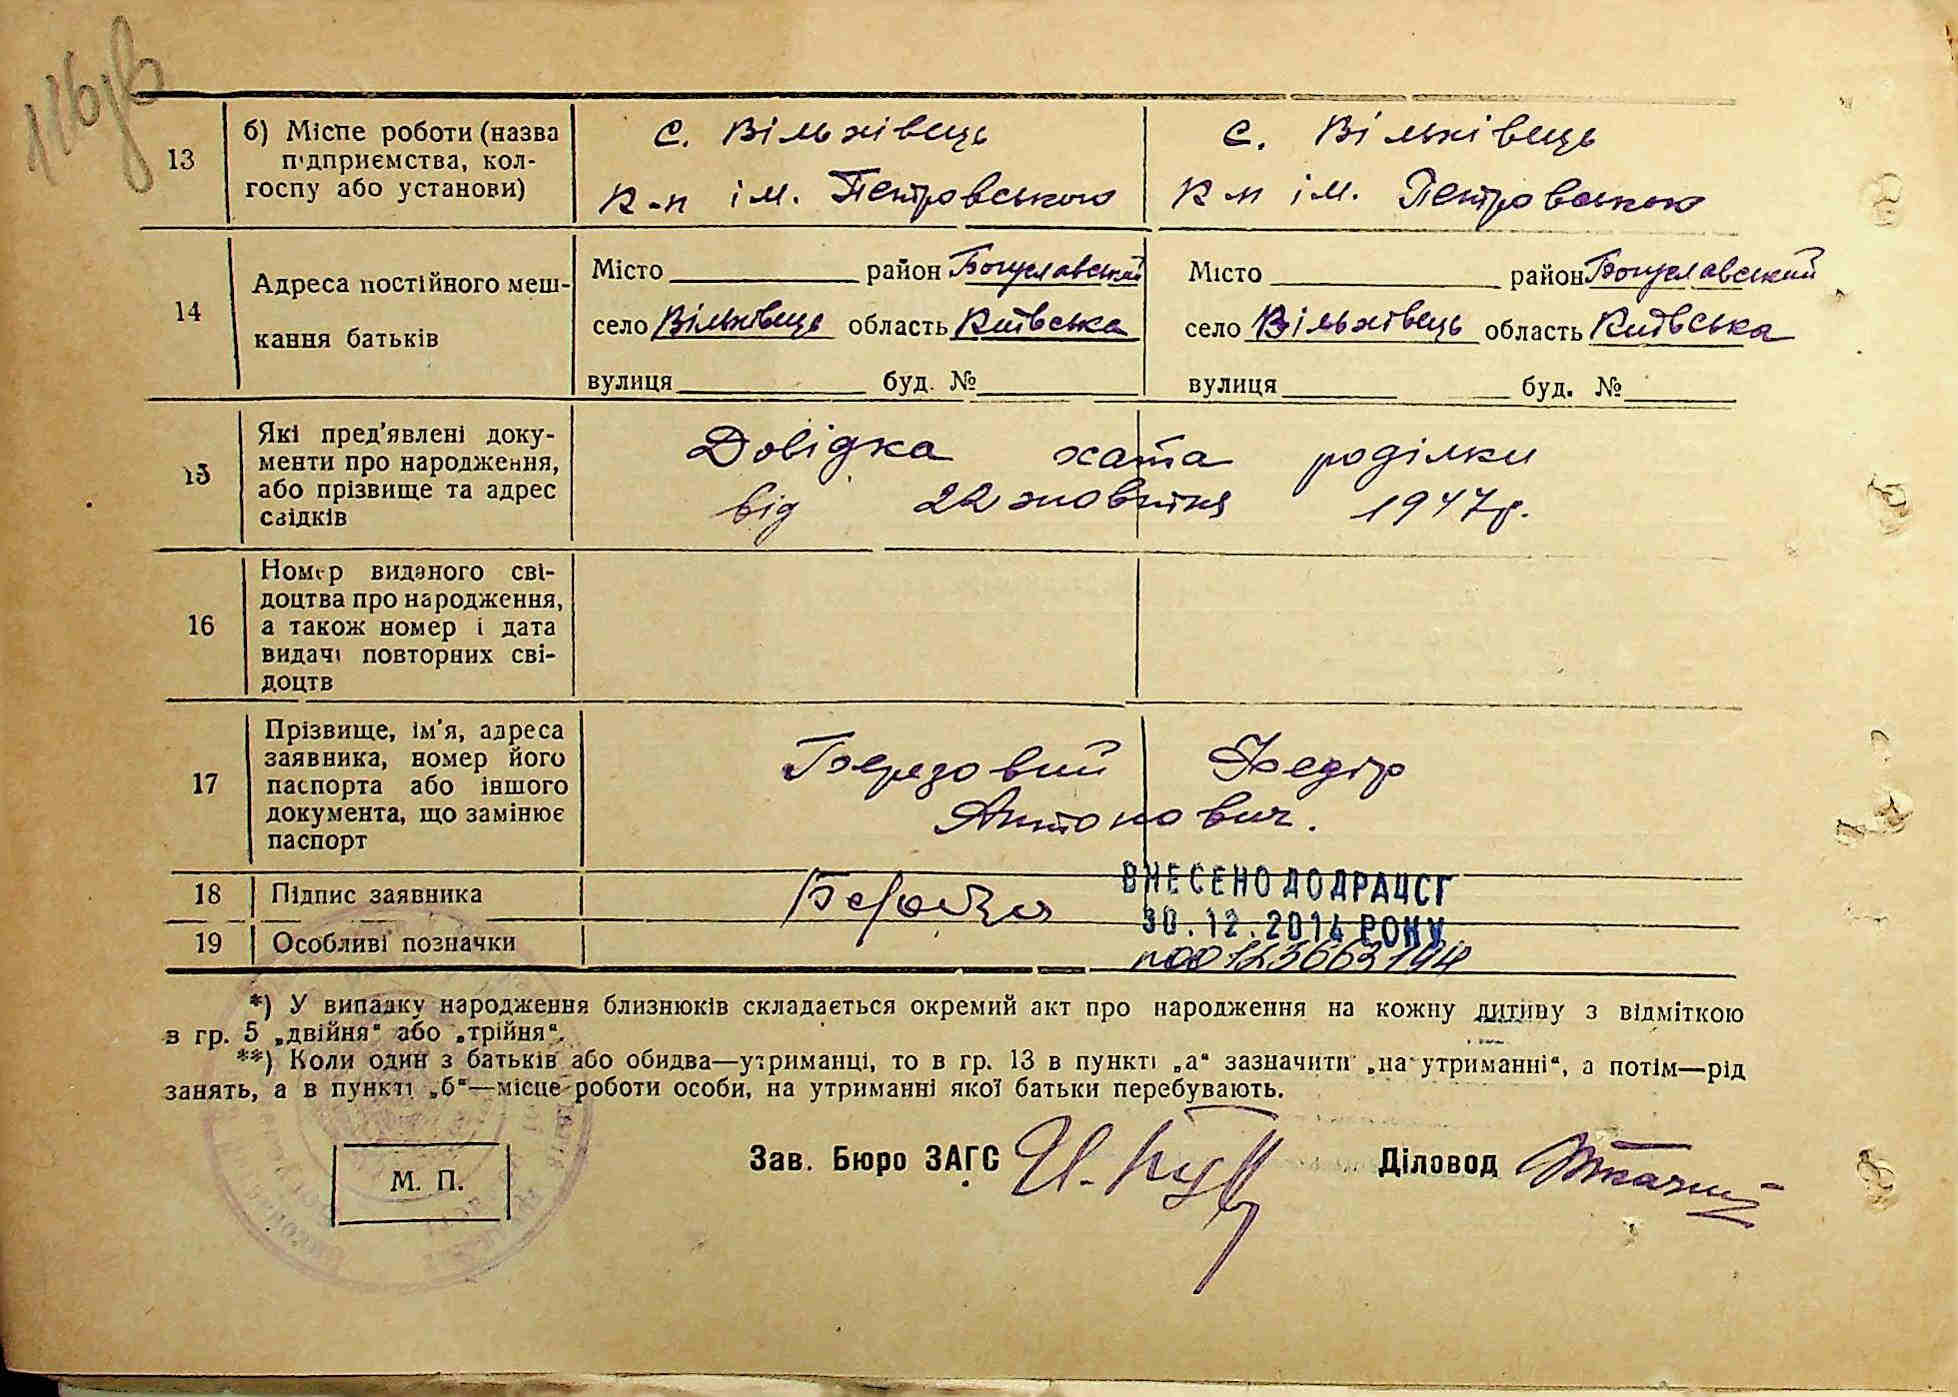 116зв
13
б) Місце роботи (назва
підприємства, кол-
госпу або установи)
с. Вільхівець
к-п ім. Петровського
с. Вільхівець
к-п ім. Петровського
14
Адреса постійного меш-
кання батьків
Місто район Богуславський
село Вільхівець область Київська
вулиця буд. №
Місто район Богуславський
село Вільхівець область Київська
вулиця буд. №
15
Які пред'явлені доку-
менти про народження,
або прізвище та адрес
свідків
Довідка хата роділки
від 22 жовтня 1947 р.
16
Номер виданого сві-
доцтва про народження,
а також номер і дата
видачі повторних сві-
доцтв
17
Прізвище, ім'я, адреса
заявника, номер його
паспорта або іншого
документа, що замінює
паспорт
Березовий Федір
Антонович.
18 Підпис заявника
ВНЕСЕНО ДО ДРАЦСГ
30.12.2014 РОКУ
19 Особливі позначки
*) У випадку народження близнюків складається окремий акт про народження на кожну дитину з відміткою
в гр. 5 „двійня“ або „трійня“.
**) Коли один з батьків або обидва—утриманці, то в гр. 13 в пункті „а“ зазначити „на утриманні“, а потім—рід
занять, а в пункті „б“—місце роботи особи, на утриманні якої батьки перебувають.
М. П.
Зав. Бюро ЗАГС
Діловод Ткачий